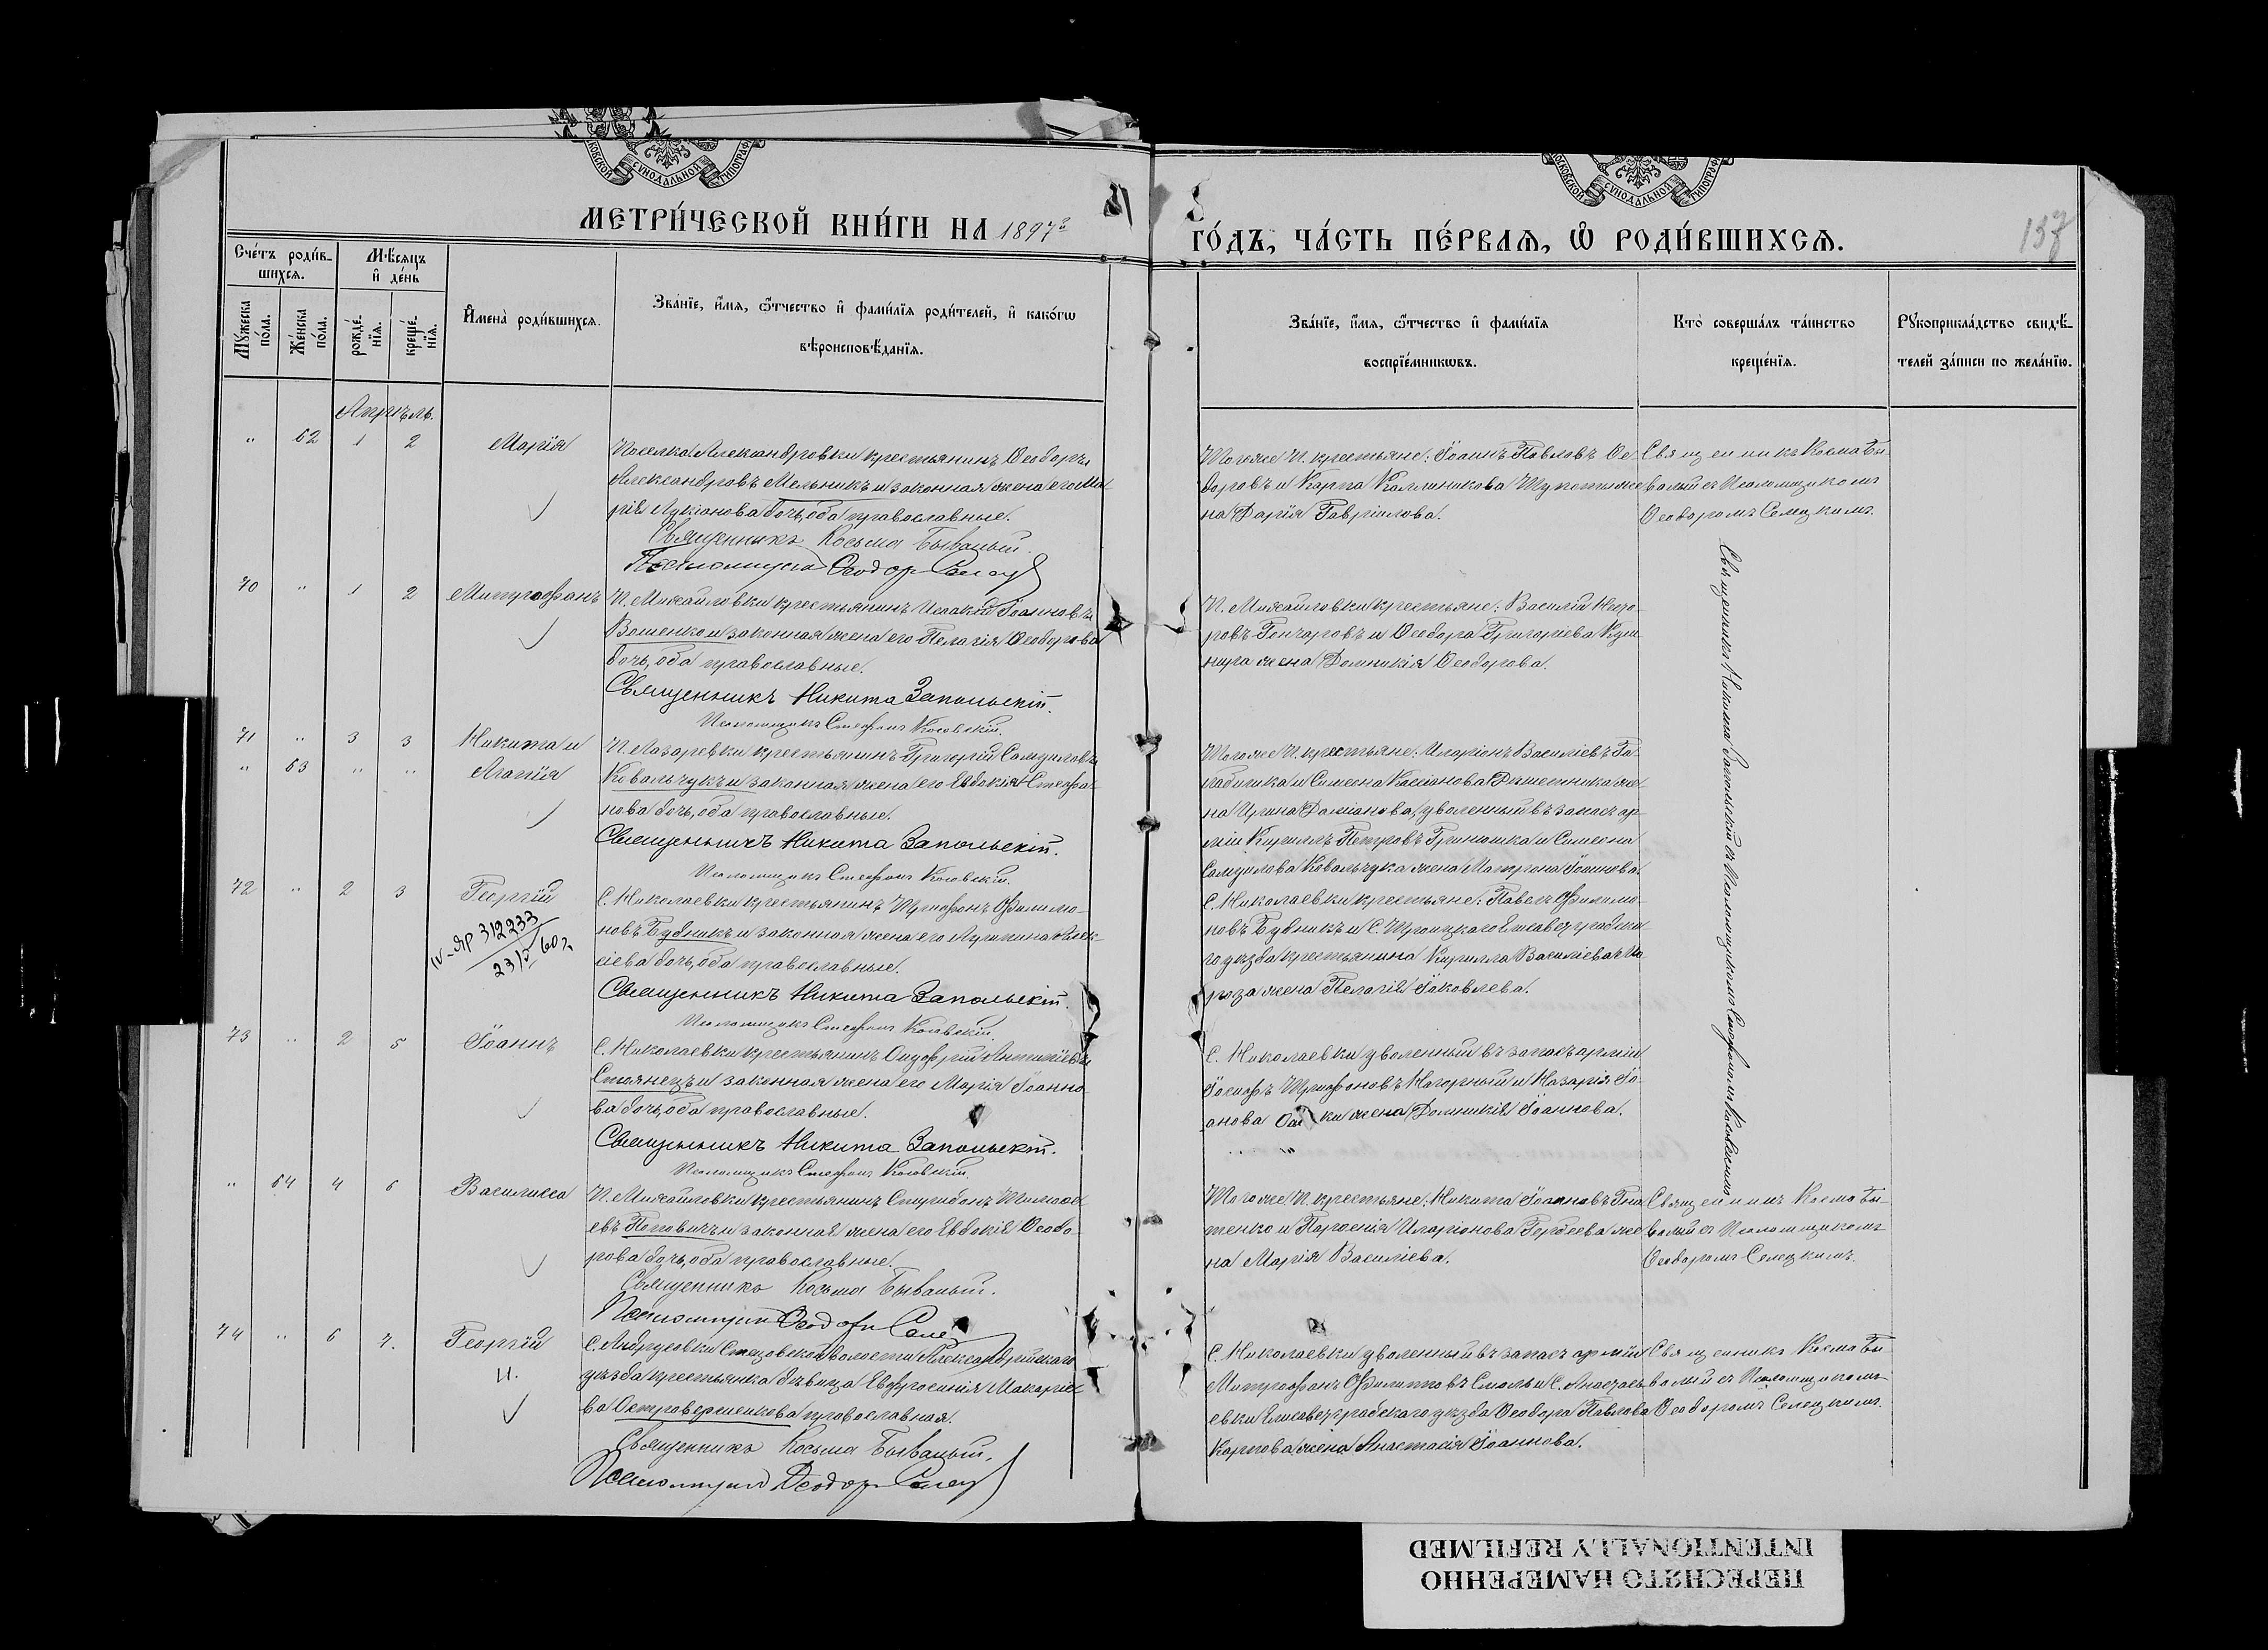 МЕТРИ́ЧЕСКОЙ КНИ́ГИ НА 1897 г
ГО́ДЪ, ЧА́СТЬ ПЕ́РВАѦ, Ѽ РОДИ́ВШИХСѦ.
Сче́тъ роди́в-
шихсѧ.
Мѣ́сяцъ
и҆ де́нь
Мꙋ́жеска
по́ла.
Же́нска
по́ла.
рожде́-
нїѧ.
креще́-
нїѧ.
И҆мена̀ роди́вшихсѧ.
Зва́нїе, и҆́мѧ, ѻ҆́тчество и҆ фами́лїѧ роди́телей, и҆ како́гѡ
вѣроисповѣ́данїѧ.
Зва́нїе, и҆́мѧ, ѻ҆́тчество и҆ фами́лїѧ
воспрїе́мникѡвъ.
Кто̀ соверша́лъ та́инство
креще́нїѧ.
Рꙋкоприкла́дство свидѣ́-
телей за́писи по жела́нїю.
Апрѣль.
" 62 1 2 Марія
Поселка Александровки крестьянинъ Ѳеодоръ
Александровъ Мельникъ и законная жена его Ма-
рія Лукіанова дочь, оба православные.
Священникъ Косьма Бываный.
Псаломщикъ Ѳеодоръ
Тогоже П. крестьяне: Іоаннъ Павловъ Ѳе-
доровъ и Карпа Каллиникова же
на Дарія Гавріилова.
Священникъ Косма Бы-
валый съ Псаломщикомъ
Ѳеодоромъ Селецкимъ.
70 " 1 2 Митрофанъ
П. Михайловки крестьянинъ Исаакій Іоанновъ
Вошенко и законная жена его Пелагія Ѳеодорова
дочь, оба православные.
Священникъ Никита Запольскій.
Псаломщикъ Стефанъ Косовскій.
П. Михайловки крестьяне: Василій
Гончаровъ и Ѳеодора Григоріева Куш-
нира жена Домникія Ѳеодорова.
Священникъ Никита Запольскій съ Псаломщикомъ Стефаномъ Косовскимъ
71 " 3 3 Никита и
" 63 " " Агапія
П. Лазаревки крестьянинъ Григорій Самуиловъ
Ковальчукъ и законная жена его Евдокія Стефа-
нова дочь, оба православные.
Священникъ Никита Запольскій.
Псаломщикъ Стефанъ Косовскій.
Тогоже П. крестьяне: Иларіонъ Василіевъ
и Симеона Касіанова же-
на Ирина Даміанова, уволенный въ запасъ ар-
міи Кириллъ Петровъ Гринюшка и Симеона
Самуилова Ковальчука жена Матрона Іоаннова.
72 " 2 3 Георгій
IV-ЯР 312233
23/V 60 г.
С. Николаевки крестьянинъ Трифонъ Филимо-
новъ Будникъ и законная жена его Лукина Алек-
сіева дочь, оба православные.
Священникъ Никита Запольскій.
Псаломщикъ Стефанъ Косовскій.
С. Николаевки крестьяне: Павелъ Филимо-
новъ Будникъ и С. Троицкаго Елисаветградска-
го уѣзда крестьянина Кирилла Василіева Мо-
роза жена Пелагія Іаковлева.
73 " 2 5 Іоаннъ
С. Николаевки крестьянинъ Онуфрій Антипіевъ
Стоянецъ и законная жена его Марія Іоанно-
ва дочь, оба православные.
Священникъ Никита Запольскій.
Псаломщикъ Стефанъ Косовскій.
С. Николаевки уволенный въ запасъ арміи
Іосифъ Трифоновъ Нагорный и Назарія Іо-
анова жена Домникія Іоаннова.
" 64 4 6 Василисса
П. Михайловки крестьянинъ Спиридонъ Тимофе-
евъ Поповичъ и законная жена его Евдокія Ѳеодо-
рова дочь, оба православные.
Священникъ Косьма Бываный.
Псаломщикъ Ѳеодоръ
Тогоже П. крестьяне: Никита Іоанновъ Гна-
тенко и Парѳенія Иларіонова Гордѣева же
на Марія Василіева.
Священникъ Косма Бы-
валый съ Псаломщикомъ
Ѳеодоромъ Селецкимъ.
74 " 6 7. Георгій
Н.
С. Андрусовки Стецовской волости Александрійскаго
уѣзда крестьянка дѣвица Евфросинія Макаріе-
ва Островершенкова православная.
Священникъ Косьма Бываный.
Псаломщикъ Ѳеодоръ
С. Николаевки уволенный въ запасъ арміи
Митрофанъ Филипповъ и С. Анастась-
евки Елисаветградскаго уѣзда Ѳеодора Павлова
Карпова жена Анастасія Іоаннова.
Священникъ Косма Бы-
валый съ Псаломщикомъ
Ѳеодоромъ Селецкимъ.
ПЕРЕСНЯТО НАМЕРЕННО
INTENTIONALLY REFILMED